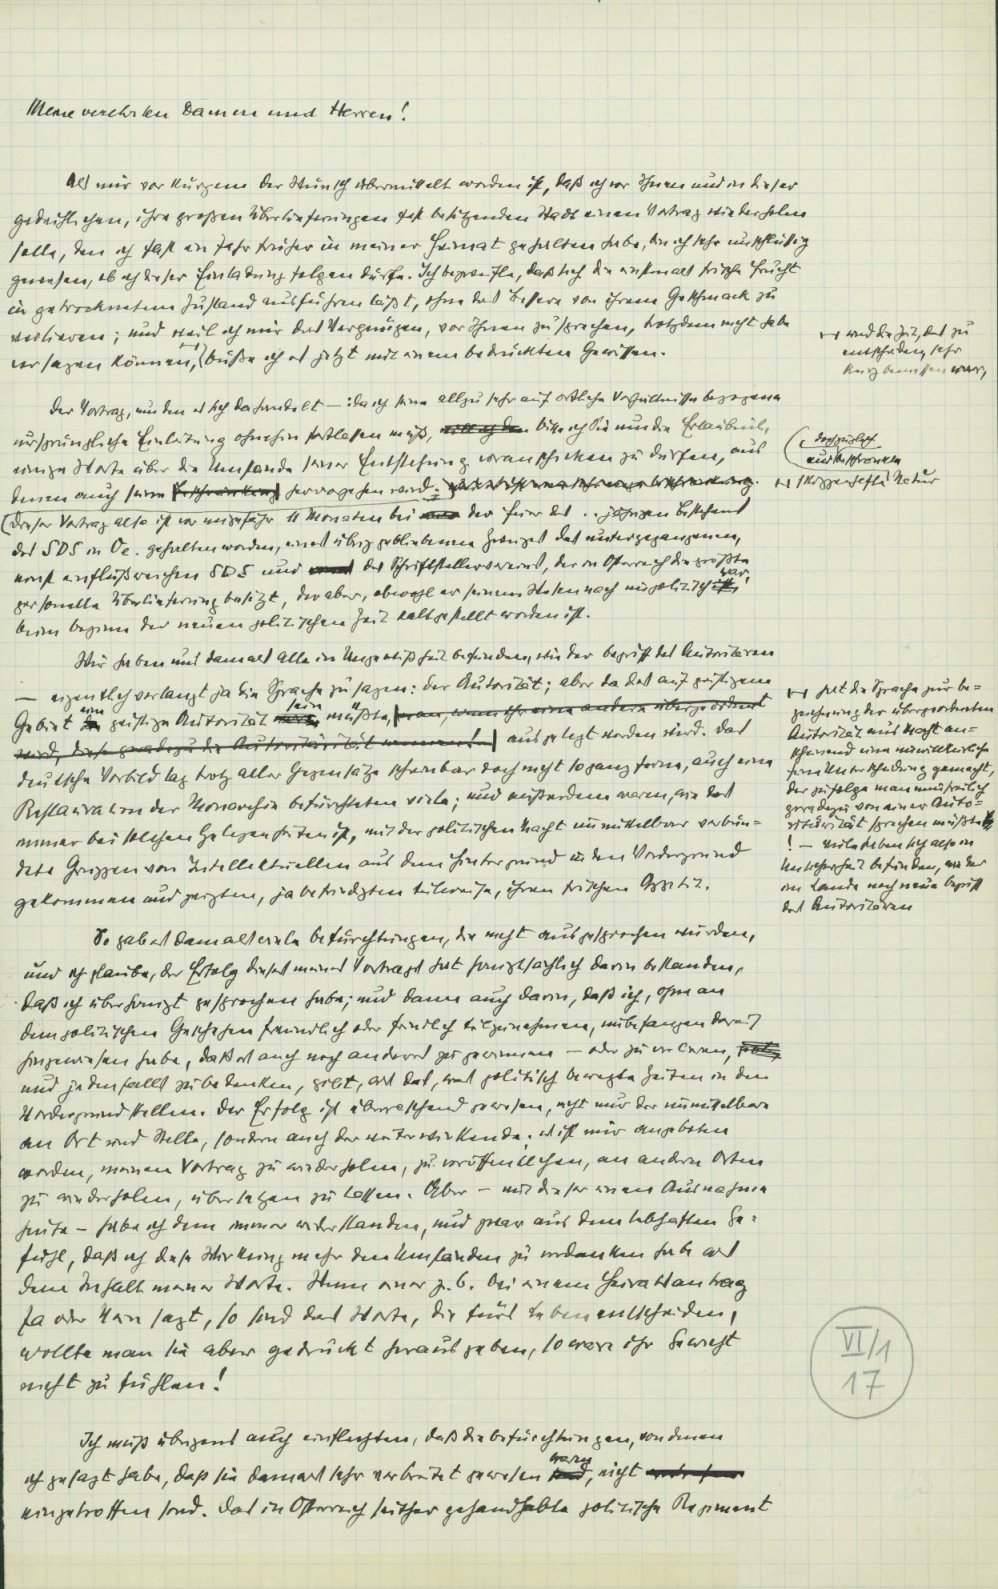 Meine verehrten Damen und Herren!
Als mir vor Kurzem der Wunsch übermittelt worden ist, daß ich vor Ihnen und in dieser
gedeihlichen, ihre großen Überlieferungen fest besitzenden Stadt einen Vortrag wiederholen
solle, den ich fast ein Jahr früher in meiner Heimat gehalten habe, bin ich sehr unschlüssig
gewesen, ob ich dieser Einladung folgen dürfe. Ich bezweifle, daß sich die einstmals frische Frucht
in getrocknetem Zustand ausführen läßt, ohne das Bessere von ihrem Geschmack zu
verlieren; und weil ich mir das Vergnügen, vor Ihnen zu sprechen, trotzdem nicht habe
versagen können, büße ich es jetzt mit einem bedrückten Gewissen.
und die Zeit, das zu
entscheiden, sehr
kurz bemessen war,
Der Vortrag, um den es sich da handelt –: da ich seine allzu sehr auf örtliche Verhältnisse bezogene
ursprüngliche Einleitung ohnehin fortlassen muß, bitte ich Sie nun die Erlaubnis,
einige Worte über die Umstände seiner Entstehung voranschicken zu dürfen, aus
denen auch seine Beschränkung hervorgehen wird:
doch zugleich
auch beschränkte
skizzenhafte Natur
Dieser Vortrag also ist vor ungefähr 11 Monaten bei der Feier des .. jährigen Bestehens
des SDS in Oe. gehalten worden, eines übrig gebliebenen Zweiges des untergegangenen,
einst einflußreichen SDS und des Schriftstellervereins, der in Österreich die größte
personelle Überlieferung besitzt, der aber, obwohl er seinem Wesen nach unpolitisch war,
beim Beginn der neuen politischen Zeit kaltgestellt worden ist.
Wir haben uns damals alle in Ungewißheit befunden, wie der Begriff des Autoritären
– eigentlich verlangt ja die Sprache zu sagen: der Autorität; aber da das auf geistigem
Gebiet eine geistige Autorität sein müßte, man, wenn ihr eine andere übergeordnet
wird, diese geradezu die Autoritärität nennen! – ausgelegt werden wird. Das
deutsche Vorbild lag trotz aller Gegensätze scheinbar doch nicht so ganz ferne, auch eine
Restauration der Monarchie befürchteten viele; und außerdem waren, wie das
immer bei solchen Gelegenheiten ist, mit der politischen Macht unmittelbar verbün-
dete Gruppen von Intellektuellen aus dem Hintergrund in den Vordergrund
gekommen und zeigten, ja befriedigten teilweise, ihren frischen Appetit.
hat die Sprache zur Be-
zeichnung der übergeordneten
Autorität aus Macht an-
scheinend eine unwillkürliche
feine Unterscheidung gemacht,
der zufolge man nunfreilich
geradezu von einer Auto-
ritärität sprechen müßte
! – viele haben sich also in
Unsicherheit befunden, wie der
im Lande noch neue Begriff
des Autoritären
So gab es damals viele Befürchtungen, die nicht ausgesprochen wurden,
und ich glaube, der Erfolg dieses meines Vortrages hat hauptsächlich darin bestanden,
daß ich überhaupt gesprochen habe; und dann auch darin, daß ich, ohne an
dem politischen Geschehen freundlich oder feindlich teilzunehmen, unbefangen darauf
hingewiesen habe, daß es auch noch anderes zu gewinnen – oder zu verlieren,
und jedenfalls zu bedenken, gibt, als das, was politisch bewegte Zeiten in den
Vordergrund stellen. Der Erfolg ist überraschend gewesen, nicht nur der unmittelbare
an Ort und Stelle, sondern auch der weiterwirkende; es ist mir angeboten
worden, meinen Vortrag zu wiederholen, zu veröffentlichen, an andern Orten
zu wiederholen, übersetzen zu lassen. Aber – mit dieser einen Ausnahme
heute – habe ich dem immer widerstanden, und zwar aus dem lebhaften Ge-
fühl, daß ich diese Wirkung mehr den Umständen zu verdanken habe als
dem Inhalt meiner Worte. Wenn einer z. B. bei einem Heiratsantrag
Ja oder Nein sagt, so sind das Worte, die fürs Leben entscheiden,
wollte man sie aber gedruckt herausgeben, so wäre ihr Gewicht
nicht zu fühlen!
VI/1
17
Ich muß übrigens auch einflechten, daß die Befürchtungen, von denen
ich gesagt habe, daß sie damals sehr verbreitet gewesen waren, nicht
eingetroffen sind. Das in Österreich seither gehandhabte politische Regiment